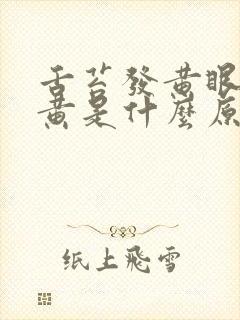 舌苔發黄眼
黄是什麼原
纸上飛雪